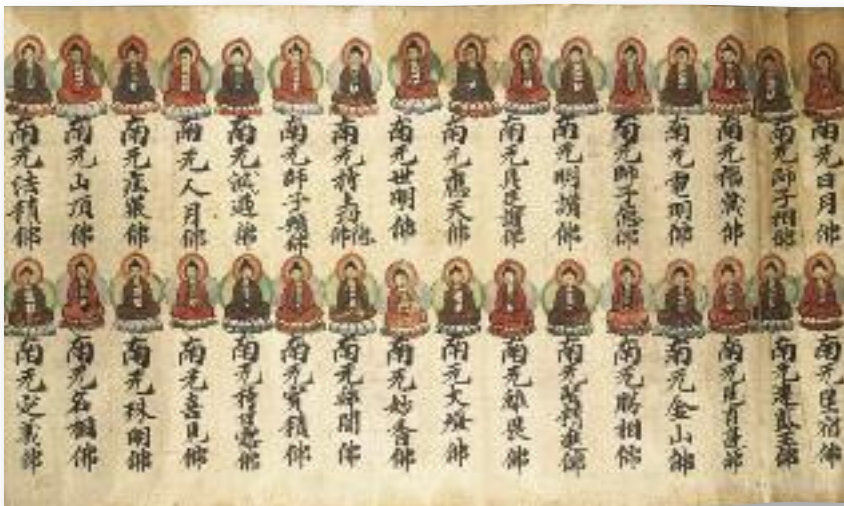 南无日月佛
南无師子相佛
南无福藏佛
南无電明佛
南无師子德佛
南无明讚佛
南无具足讚佛
南无應天佛
南无世明佛
南无持上功德佛
南无師子頰佛
南无滅過佛
南无人月佛
南无莊嚴佛
南无山頂佛
南无法積佛
南无星宿佛
南无違藍王佛
南无見有邊佛
南无金山佛
南无勝相佛
南无堅精進佛
南无離畏佛
南无大燈佛
南无妙香佛
南无離闇佛
南无寶積佛
南无持甘露佛
南无喜見佛
南无珠明佛
南无名相佛
南无定義佛